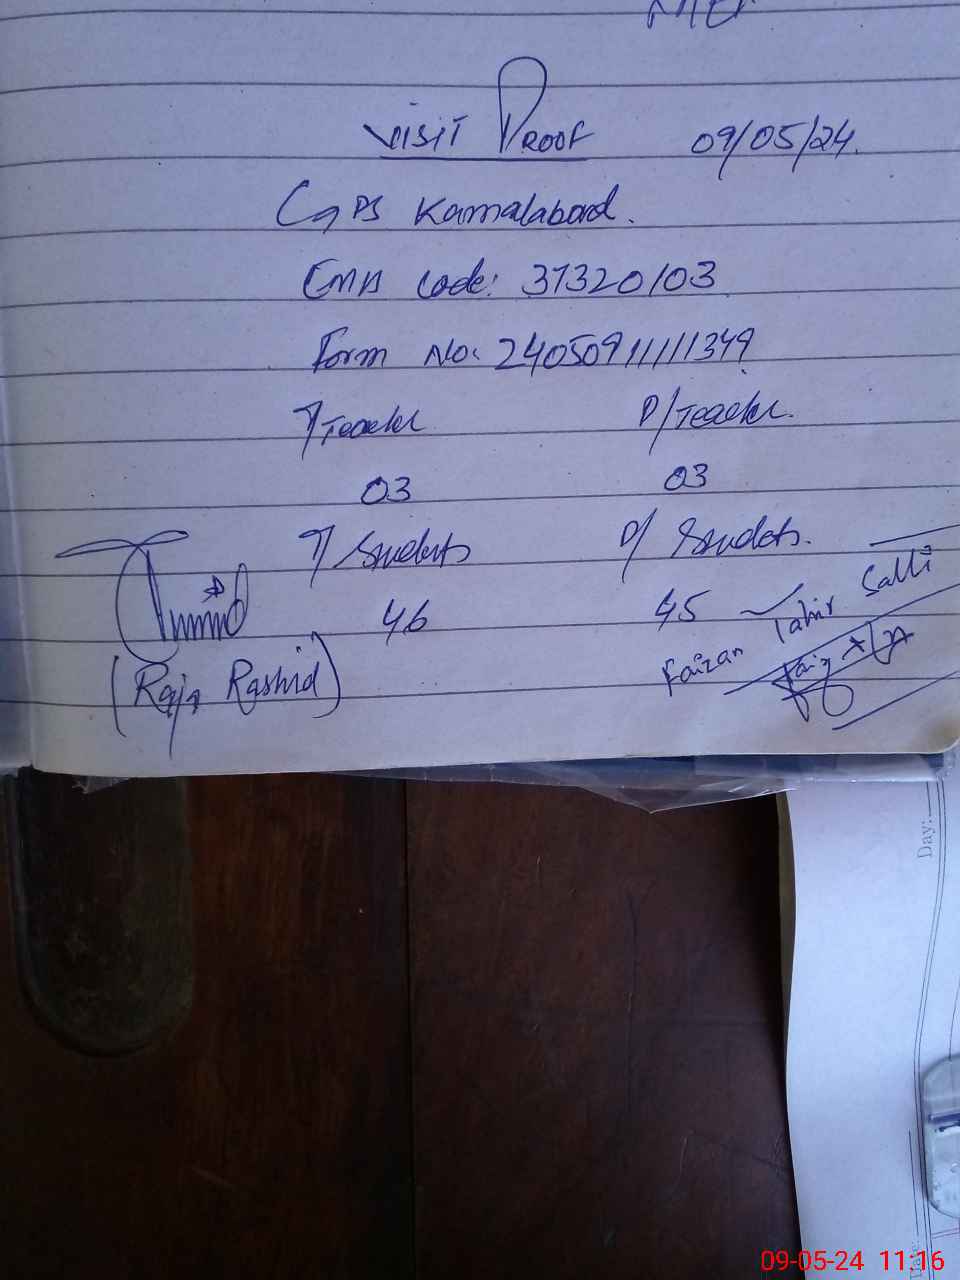 VISIT PROOF 09/05/24.
GPS Kamalabad.
EMIS Code: 37320103
Form No: 240509111111349
T/Teacher P/Teacher.
03 03
T/Students P/Students.
46 45
Faizan Tahir Satti
(Raja Rashid)
Day:
Date:
09-05-24 11:16